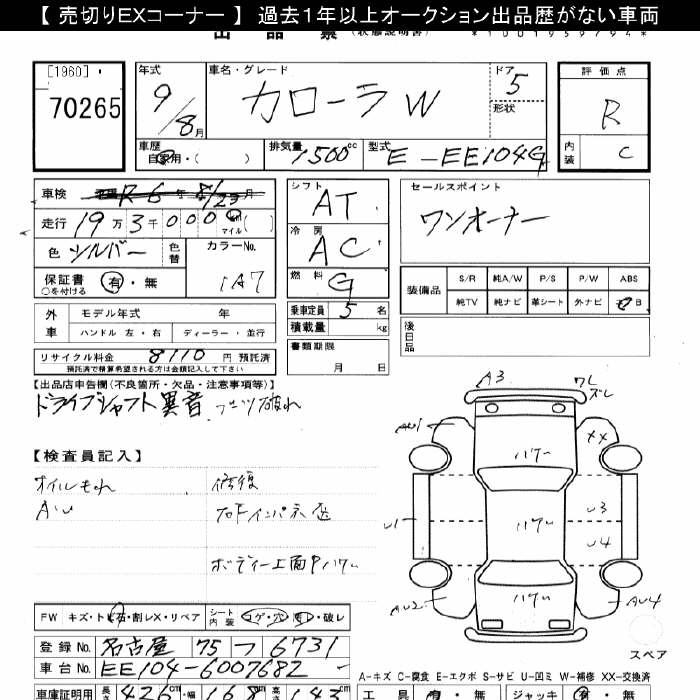 【 売切りEXコーナー 】 過去1年以上オークション出品歴がない車両
出 品 票 (状態説明書) *100195979​4*
[1960]
70265
年式 車名・グレード ドア 評価点
9/8月 カローラW 5 R
形状
車歴 排気量 型式 内装
自家用・( ) 1,500cc E-EE104G C
車検 R6年 8/23月
シフト AT
セールスポイント
走行 19万3千000 km マイル( )
ワンオーナー
冷房 AC
色 シルバー 色替 カラーNo. 1A7
保証書 有・無
○を付ける
燃料 G
装備品 S/R 純A/W P/S P/W ABS
純TV 純ナビ 革シート 外ナビ B
外車 モデル年式 年
ハンドル 左・右 ディーラー・並行
乗車定員 5名
積載量 kg
後日品
リサイクル料金 8110 円 預託済
預託済で精算希望される方は金額記入して下さい
書類期限 月 日
【出品店申告欄(不良箇所・欠品・注意事項等)】
ドライブシャフト異音 ブーツ破れ
A3 ワレ ズレ
AU1 XX
ハワレ
【検査員記入】
オイルもれ 修復
AU
U1 U3
U4
ボディー上面Pハワレ
AU2 AU4
スペア
FW キズ・ト石・割レX・リペア シート内装 コゲ・穴・汚・破レ
登録No. 名古屋 75 フ 6731
車台No. EE104-6007682
A-キズ C-腐食 E-エクボ S-サビ U-凹ミ W-補修 XX-交換済
車庫証明用 長さ 426cm 幅 168 高さ 143
工具 有・無 ジャッキ 有・無